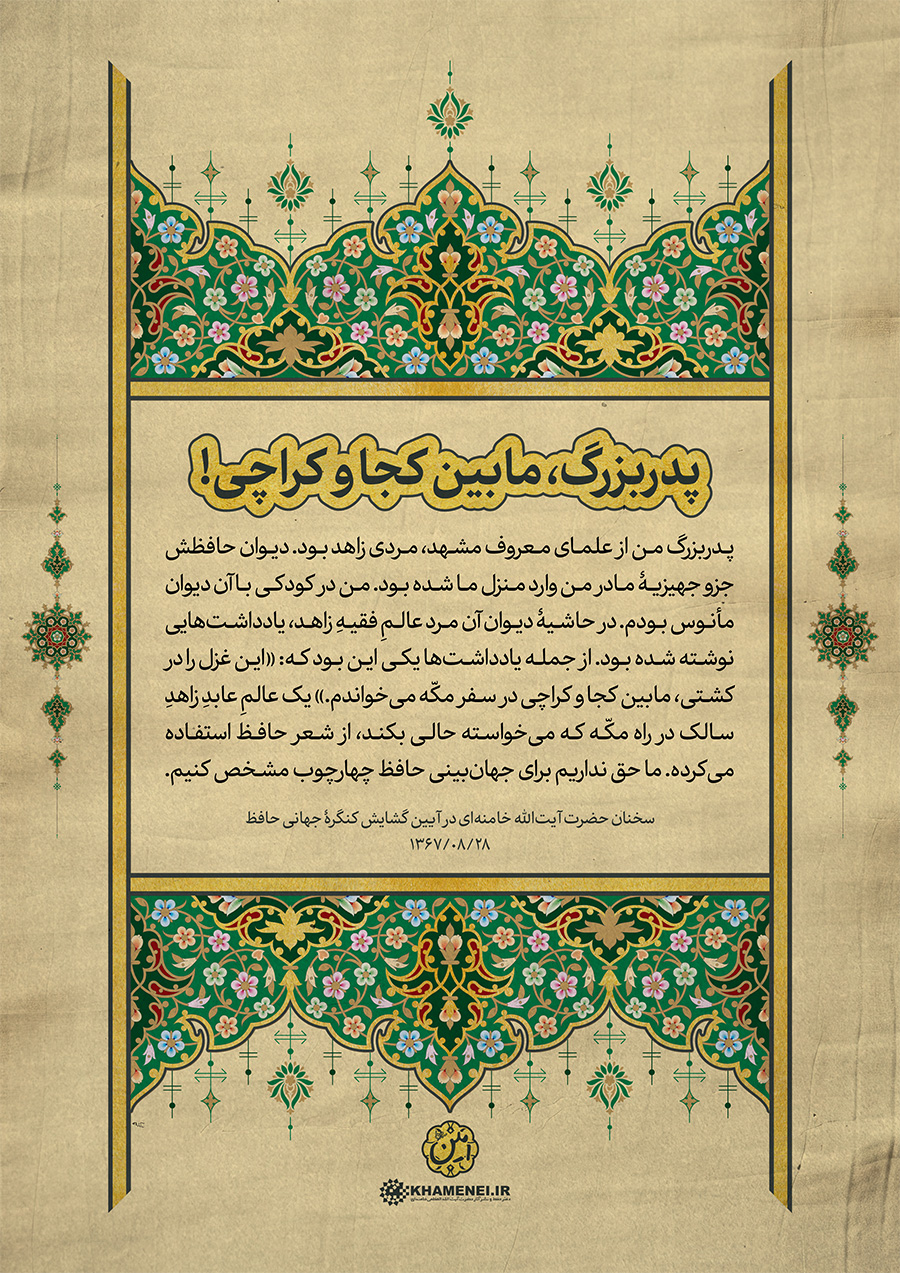 پدربزرگ، مابین کجا و کراچی!
پدربزرگ من از علمای معروف مشهد، مردی زاهد بود. دیوان حافظش
جزو جهیزیهٔ مادر من وارد منزل ما شده بود. من در کودکی با آن دیوان
مأنوس بودم. در حاشیهٔ دیوان آن مرد عالمِ فقیهِ زاهد، یادداشت‌هایی
نوشته شده بود. از جمله یادداشت‌ها یکی این بود که: «این غزل را در
کشتی، مابین کجا و کراچی در سفر مکّه می‌خواندم.» یک عالمِ عابدِ زاهدِ
سالک در راه مکّه که می‌خواسته حالی بکند، از شعر حافظ استفاده
می‌کرده. ما حق نداریم برای جهان‌بینی حافظ چهارچوب مشخص کنیم.
سخنان حضرت آیت‌الله خامنه‌ای در آیین گشایش کنگرهٔ جهانی حافظ
۱۳۶۷/۰۸/۲۸
KHAMENEI.IR